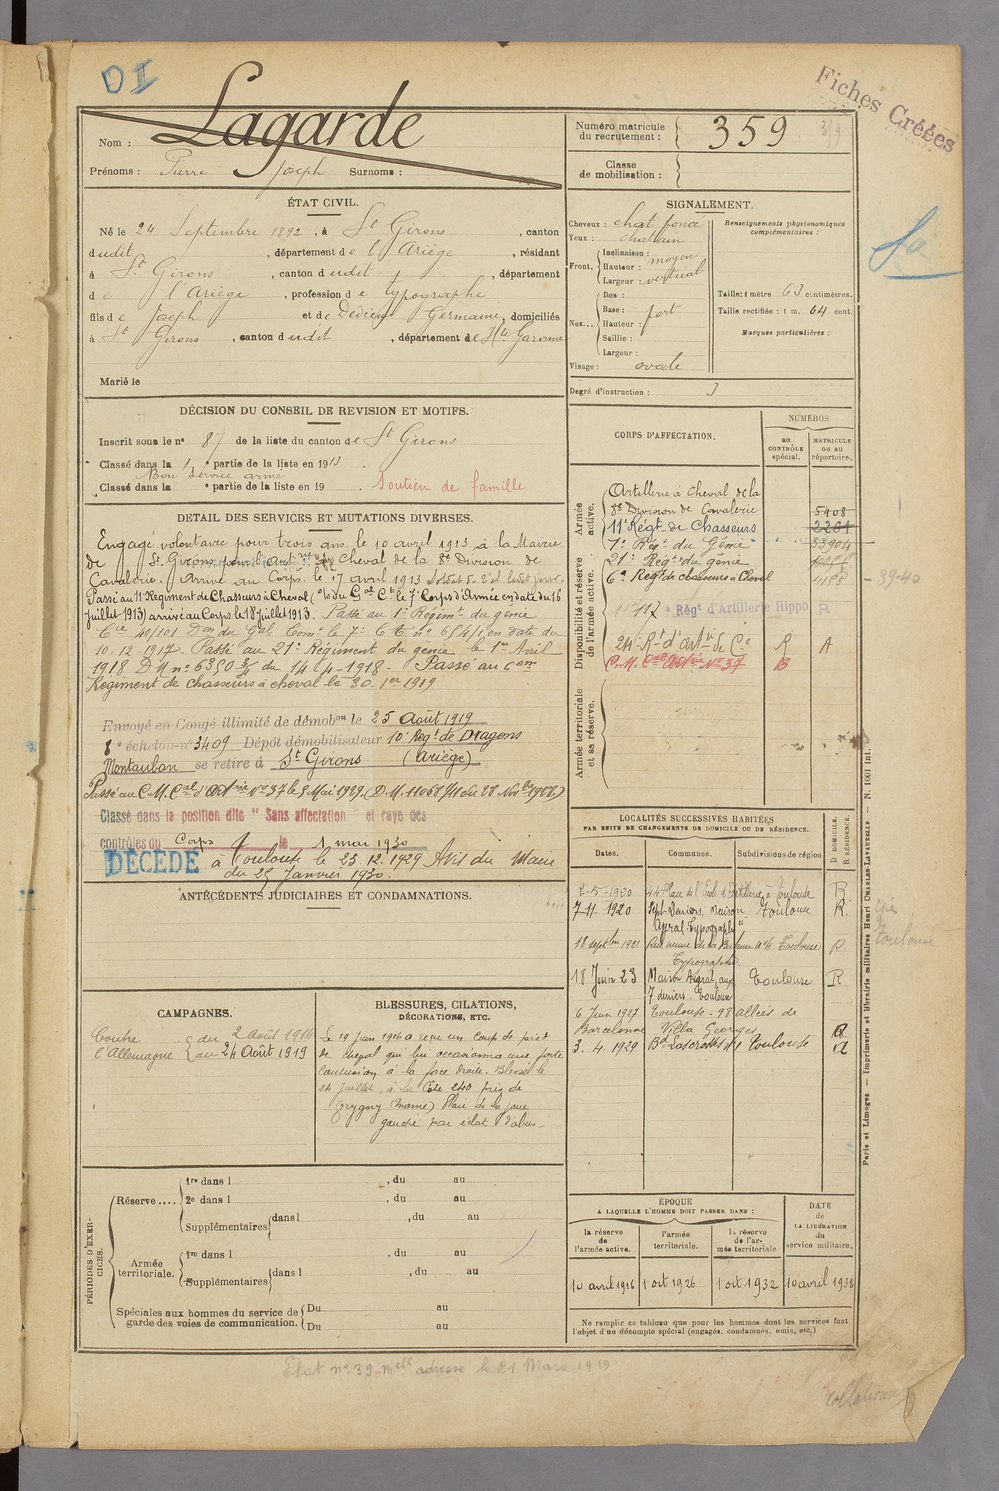 DI
Fiches Créées
Nom : Lagarde
Prénoms : Pierre Joseph Surnoms :
Numéro matricule du recrutement : 359
Classe de mobilisation :
ÉTAT CIVIL.
Né le 24 Septembre 1892, à St Girons, canton
dudit, département de l'Ariège, résidant
à St Girons, canton dudit, département
de l'Ariège, profession de typographe
fils de Joseph et de Dedieu Germaine, domiciliés
à St Girons, canton dudit, département de Hte Garonne
Marié le
SIGNALEMENT.
Cheveux : chat foncé
Yeux : chatain
Front. Inclinaison : moyen
Hauteur :
Largeur : vertical
Nez... Dos :
Base : fort
Hauteur :
Saillie :
Largeur :
Visage : ovale
Renseignements physionomiques complémentaires :
Taille : 1 mètre 63 centimètres.
Taille rectifiée : 1 m. 64 cent.
Marques particulières :
Degré d'instruction : 3
DÉCISION DU CONSEIL DE REVISION ET MOTIFS.
Inscrit sous le no 87 de la liste du canton de St Girons
Classé dans la 1e partie de la liste en 1913.
Bon service armé
Classé dans la e partie de la liste en 19 . Soutien de famille
DETAIL DES SERVICES ET MUTATIONS DIVERSES.
Engagé volontaire pour trois ans, le 10 avril 1913 à la Mairie
de St Girons, pour l'Artrie à Cheval de la 8e Division de
Cavalerie. Arrivé au Corps le 17 avril 1913 Soldat de 2e cl. ledit jour.
Passé au 11e Régiment de Chasseurs à Cheval (on du Gal Ct le 7e Corps d'Armée en date du 16
Juillet 1913) arrivé au Corps le 18 Juillet 1913. Passé au 1er Régimt du génie
Cie 40/101 Don du Gal Comt le 7e C.A. no 654/1 en date du
10-12-1917. Passé au 21e Régiment du génie le 1er Avril
1918. D.M no 6350 3/5 du 14-4-1918. Passé au 6em
Régiment de chasseurs à cheval le 30. 1er 1919
Envoyé en Congé illimité de démobon le 25 Août 1919
8e échelon no 3409 Dépôt démobilisateur 10e Régt de Dragons
Montauban se retire à St Girons (Ariège)
Passé au C.M. Cal d'Artrie No 37 le 5 Mai 1929. (D.M. 11068/41 du 28 Novbre 1928)
Classé dans la position dite "Sans affectation" et rayé des
contrôles du Corps le 1 mai 1930
DÉCÉDÉ à Toulouse le 23.12.1929 Avis du Maire
du 25 Janvier 1930.
ANTÉCÉDENTS JUDICIAIRES ET CONDAMNATIONS.
CORPS D'AFFECTATION.
NUMÉROS
AU CONTRÔLE spécial.
MATRICULE OU AU répertoire.
Armée active.
Artillerie à cheval de la
8e Division de Cavalerie 5408
11e Régt de Chasseurs 2261
Disponibilité et réserve de l'armée active.
1er Régt du Génie 33904
21e Régt du génie
6e Régt de chasseurs à Cheval
117e Régt d'Artillerie Hippo R
24e Rt d'Artie de Ce R A
C.M. Cal Artrie No 37 B
Armée territoriale et sa réserve.
39-40
LOCALITÉS SUCCESSIVES HABITÉES
PAR SUITE DE CHANGEMENTS DE DOMICILE OU DE RÉSIDENCE.
Dates. Communes. Subdivisions de région D DOMICILE. R RÉSIDENCE.
2-5-1920 44 Place de l'Ecole d'Artillerie à Toulouse R
7-11 1920 Sept Deniers, Maison Toulouse R.
Agral Typographe
18 septbre 1921 Toulouse R.
Typographe
18 Juin 23 Maison Aygral, aux Toulouse R
7 deniers. Toulouse
6 Juin 1927 Toulouse - 98 allées de
Barcelonne Villa Georges R
3. 4. 1929 Bd Lascrosses 11 Toulouse R
Toulouse
CAMPAGNES.
Contre du 2 Août 1914
l'Allemagne au 24 Août 1919
BLESSURES, CITATIONS, DÉCORATIONS, ETC.
Le 19 Juin 1916 a reçu un coup de pied
de cheval qui lui occasionna une forte
contusion à la face droite. Blessé le
24 Juillet, à la Côte 240 près de
(Marne) Plaie de la joue
gauche par éclat d'obus
PÉRIODES D'EXERCICES.
Réserve.... 1re dans l , du au
2e dans l , du au
Supplémentaires dans l , du au
Armée territoriale. 1re dans l , du au
Supplémentaires dans l , du au
Spéciales aux hommes du service de garde des voies de communication. Du au
Du au
ÉPOQUE
A LAQUELLE L'HOMME DOIT PASSER DANS :
la réserve de l'armée active.
l'armée territoriale.
la réserve de l'armée territoriale.
DATE de LA LIBÉRATION du service militaire.
10 avril 1916 1 oct 1926 1 oct 1932 10 avril 1938
Ne remplir ce tableau que pour les hommes dont les services font
l'objet d'un décompte spécial (engagés, condamnés, omis, etc.)
Paris et Limoges. — Imprimerie et librairie militaires Henri CHARLES-LAVAUZELLE — N. 1001 Int.
Etat no 39 melle adresse le 21 Mars 1919